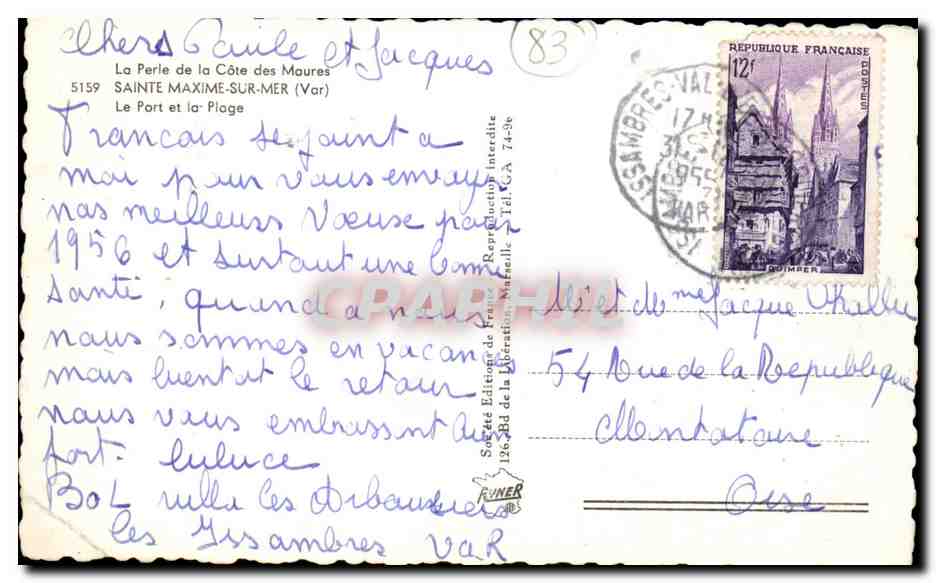 Chers Paule et Jacques
83
La Perle de la Côte des Maures
5159 SAINTE MAXIME-SUR-MER (Var)
Le Port et la Plage
Francois se joint a
moi pour vous envoyer
nos meilleurs Voeuse pour
1956 et surtout une bonne
santé, quand a nous
nous sommes en vacances
mais bientot le retour
nous vous embrassont
fort. Luluce
BOL villa les Arbousiers
les Issambres VAR
Société Editions de France Reproduction interdite
126, Bd de la Libération, Marseille - Tél. GA 74-96
RYNER
CPAPHIL
ISSAMBRES-VAL
17 H
31
1955
VAR
REPUBLIQUE FRANÇAISE
12f
POSTES
QUIMPER
Mr et de mme Jacque
54 Rue de la Republique
Montataire
Oise